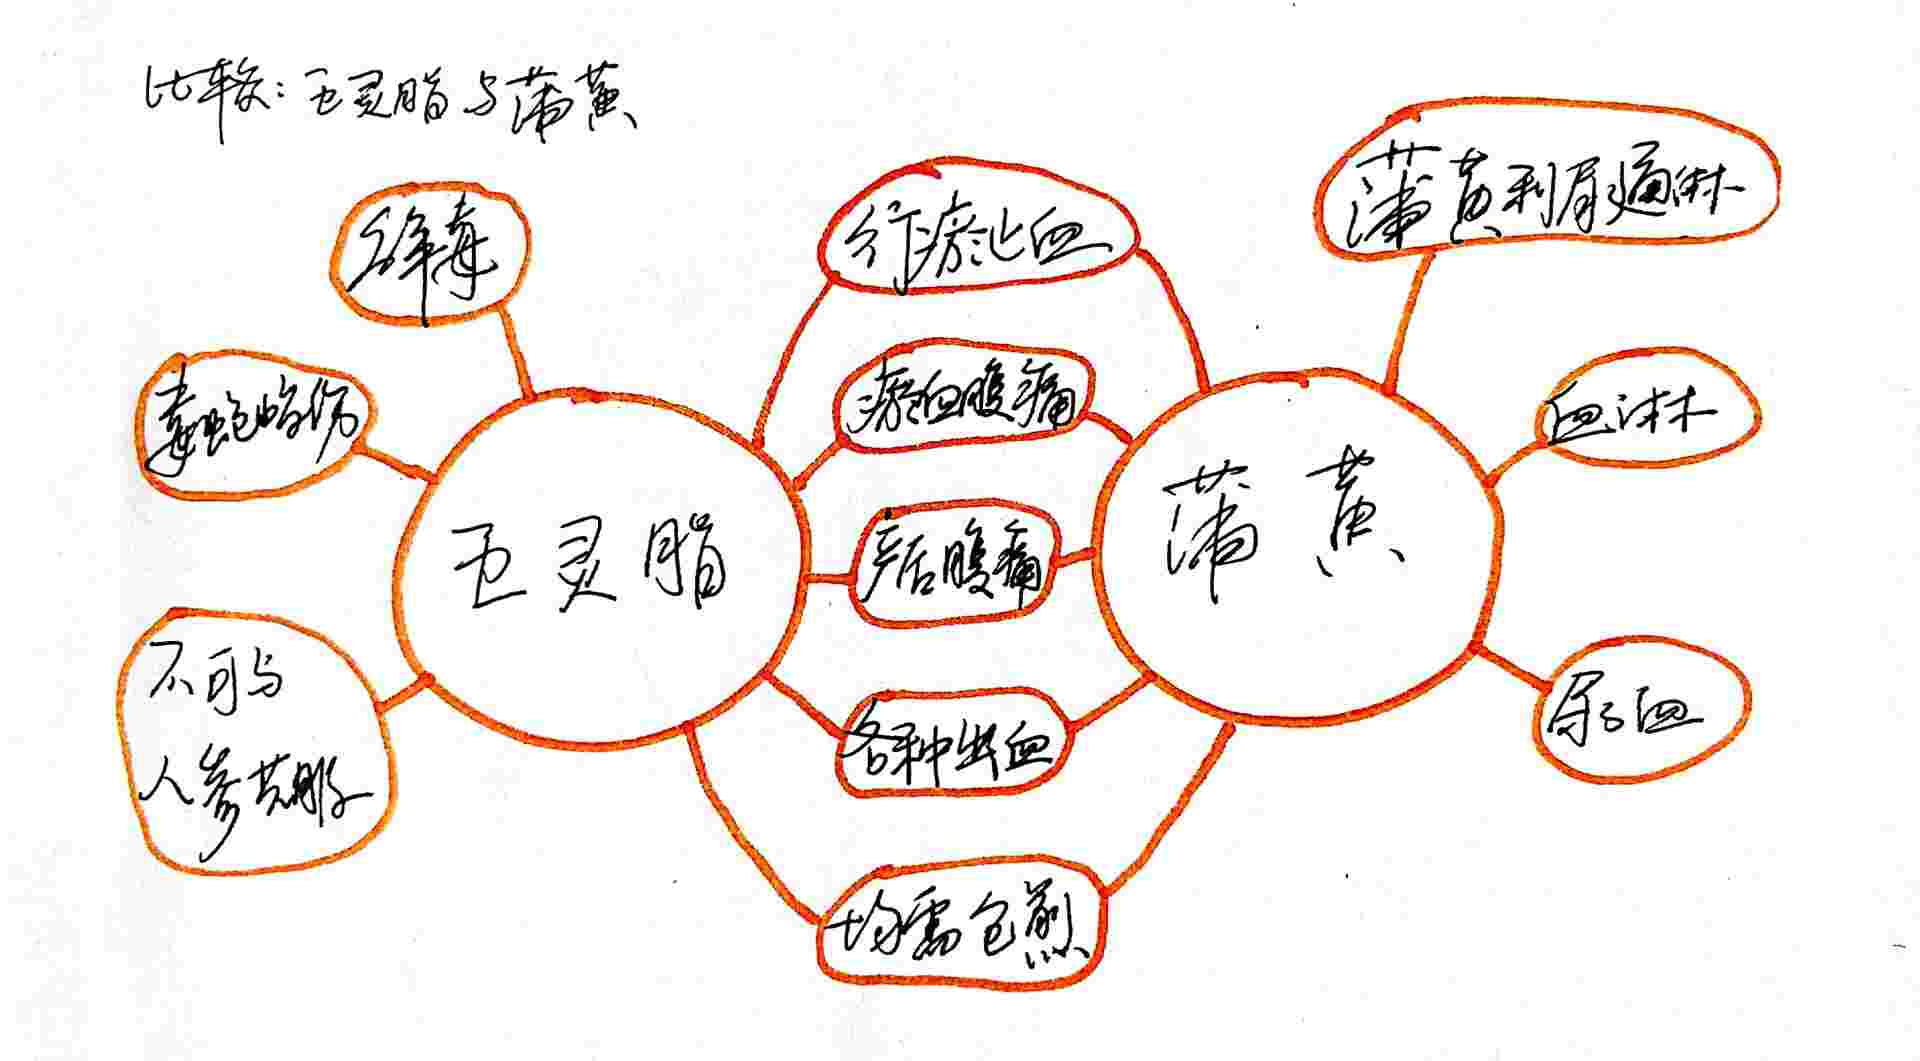 比较：五灵脂与蒲黄
解毒
毒蛇咬伤
不可与
人参共服
五灵脂
行瘀止血
瘀血腹痛
产后腹痛
各种出血
均需包煎
蒲黄
蒲黄利尿通淋
血淋
尿血